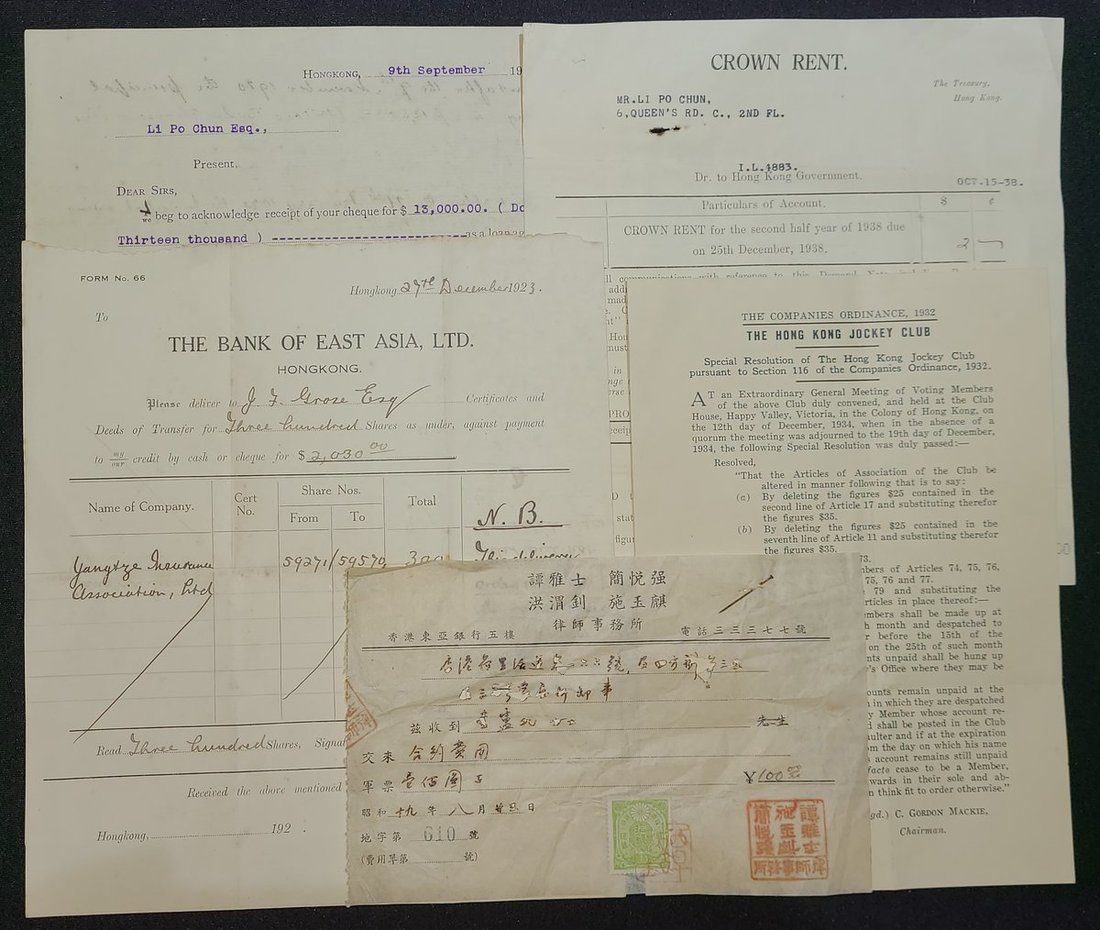 HONGKONG, 9th September 19
Li Po Chun Esq.,
Present.
DEAR SIRS,
I/we beg to acknowledge receipt of your cheque for $ 13,000.00. ( Do
Thirteen thousand ) as a loan
CROWN RENT.
The Treasury,
Hong Kong.
MR.LI PO CHUN,
6,QUEEN'S RD. C., 2ND FL.
I.L.4883.
Dr. to Hong Kong Government.
OCT.-15-38.
Particulars of Account. $ ¢
CROWN RENT for the second half year of 1938 due
on 25th December, 1938. 2 —
FORM No. 66
Hongkong 27th December 1923.
To
THE BANK OF EAST ASIA, LTD.
HONGKONG.
Please deliver to J. F. Grose Esq Certificates and
Deeds of Transfer for Three hundred Shares as under, against payment
to my/our credit by cash or cheque for $ 2,030 00
Name of Company. Cert No. Share Nos. From To Total
N. B.
Yangtze Insurance 59271/59570 300
Association, Ltd
Read Three hundred Shares,
Received the above mentioned
Hongkong, 192 .
THE COMPANIES ORDINANCE, 1932
THE HONG KONG JOCKEY CLUB
Special Resolution of The Hong Kong Jockey Club
pursuant to Section 116 of the Companies Ordinance, 1932.
AT an Extraordinary General Meeting of Voting Members
of the above Club duly convened, and held at the Club
House, Happy Valley, Victoria, in the Colony of Hong Kong, on
the 12th day of December, 1934, when in the absence of a
quorum the meeting was adjourned to the 19th day of December,
1934, the following Special Resolution was duly passed:—
Resolved,
"That the Articles of Association of the Club be
altered in manner following that is to say:
(a) By deleting the figures $25 contained in the
second line of Article 17 and substituting therefor
the figures $35.
(b) By deleting the figures $25 contained in the
seventh line of Article 11 and substituting therefor
the figures $35.
73.
bers of Articles 74, 75, 76,
75, 76 and 77.
79 and substituting the
rticles in place thereof:—
mbers shall be made up at
h month and despatched to
r before the 15th of the
on the 25th of such month
nts unpaid shall be hung up
's Office where they may be
ounts remain unpaid at the
n in which they are despatched
y Member whose account re-
d shall be posted in the Club
aulter and if at the expiration
om the day on which his name
account remains still unpaid
facto cease to be a Member,
wards in their sole and ab-
n think fit to order otherwise."
gd.) C. GORDON MACKIE,
Chairman.
譚雅士 簡悦强
洪渭釗 施玉麒
律師事務所
香港東亞銀行五樓 電話三三三七七號
茲收到 先生
交来 合約費用
軍票壹佰圓
¥100
昭和十九年八月 日
地字第 610 號
(費用單第 號)
譚雅士
施玉麒
簡悅强
律師事務所